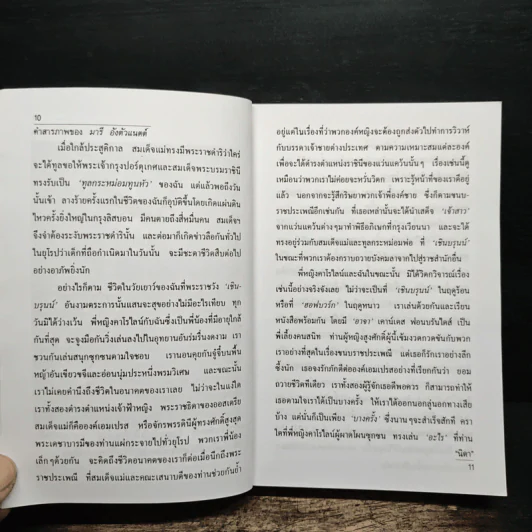 10
คำสารภาพของ มารี อังตัวแนตต์
เมื่อใกล้ประสูติกาล สมเด็จแม่ทรงมีพระราชดำริว่าใคร่
จะได้ทูลขอให้พระเจ้ากรุงปอร์ตุเกศและสมเด็จพระบรมราชินี
ทรงรับเป็น 'ทูลกระหม่อมทูนหัว' ของฉัน แต่แล้วพอถึงวัน
นั้นเข้า ลางร้ายครั้งแรกในชีวิตของฉันก็อุบัติขึ้นโดยเกิดแผ่นดิน
ไหวครั้งยิ่งใหญ่ในกรุงลิสบอน มีคนตายถึงสี่หมื่นคน สมเด็จฯ
จึงจำต้องระงับพระราชดำรินั้น และต่อมาก็เกิดข่าวลือกันทั่วไป
ในยุโรปว่าเด็กที่ถือกำเนิดมาในวันนั้น จะมีชะตาชีวิตสืบต่อไป
อย่างอาภัพยิ่งนัก
อย่างไรก็ตาม ชีวิตในวัยเยาว์ของฉันที่พระราชวัง 'เชิน-
บรุนน์' อันงามตระการนั้นแสนจะสุขอย่างไม่มีอะไรเทียบ ทุก
วันมิได้ว่างเว้น พี่หญิงคาโรไลน์กับฉันซึ่งเป็นพี่น้องที่มีอายุใกล้
กันที่สุด จะจูงมือกันวิ่งเล่นลงไปในอุทยานอันร่มรื่นงดงาม เรา
ชวนกันเล่นสนุกซุกซนตามใจชอบ เรานอนคุยกันจู๋จี๋บนพื้น
หญ้าอันเขียวขจีและอ่อนนุ่มประหนึ่งพรมวิเศษ และขณะนั้น
เราไม่เคยคำนึงถึงชีวิตในอนาคตของเราเลย ไม่ว่าจะในแง่ใด
เราทั้งสองดำรงตำแหน่งเจ้าฟ้าหญิง พระราชธิดาของออสเตรีย
สมเด็จแม่ก็คือองค์เอมเปรส หรือจักรพรรดินีผู้ทรงศักดิ์สูงสุด
พระเดชาบารมีของท่านแผ่กระจายไปทั่วยุโรป พวกเราพี่น้อง
เล็กๆ ด้วยกัน จะคิดถึงชีวิตอนาคตของเราก็ต่อเมื่อนึกถึงพระ-
ราชประเพณี ที่สมเด็จแม่และคณะเสนาบดีของท่านช่วยกันย้ำ
อยู่แต่ในเรื่องที่ว่าพวกองค์หญิงจะต้องถูกส่งตัวไปทำการวิวาห์
กับบรรดาเจ้าชายต่างประเทศ ตามความเหมาะสมแต่ละองค์
เพื่อจะได้ดำรงตำแหน่งราชินีของแว่นแคว้นนั้นๆ เรื่องเช่นนี้ดู
เหมือนว่าพวกเราไม่ค่อยจะหวั่นวิตก เพราะรู้หน้าที่ของเราดีอยู่
แล้ว นอกจากจะรู้สึกริษยาพวกเจ้าพี่องค์ชาย ซึ่งก็ตามขนบ-
ราชประเพณีอีกเช่นกัน ที่เธอเหล่านั้นจะได้นำเสด็จ 'เจ้าสาว'
จากแว่นแคว้นต่างๆ มาทำพิธีอภิเษกที่กรุงเวียนนา และจะได้
ทรงอยู่ร่วมกับสมเด็จแม่และทูลกระหม่อมพ่อ ที่ 'เชินบรุนน์'
ในขณะที่พวกเราต้องกราบถวายบังคมลาจากไปสู่ราชสำนักอื่น
พี่หญิงคาโรไลน์และฉันในขณะนั้น มิได้วิตกวิจารณ์เรื่อง
เช่นนี้อย่างจริงจังเลย ไม่ว่าจะเป็นที่ 'เชินบรุนน์' ในฤดูร้อน
หรือที่ 'ฮอฟบวร์ก' ในฤดูหนาว เราเล่นด้วยกันและเรียน
หนังสือพร้อมกัน โดยมี 'อาจา' เคาน์เตส ฟอนบรันไดส์ เป็น
พี่เลี้ยงคนสนิท ท่านผู้หญิงสูงศักดิ์ผู้นี้เข้มงวดกวดขันกับพวก
เราอย่างที่สุดในเรื่องขนบราชประเพณี แต่เธอก็รักเราอย่างลึก
ซึ้งนัก เธอจงรักภักดีต่อองค์เอมเปรสอย่างที่เรียกกันว่า ยอม
ถวายชีวิตทีเดียว เราทั้งสองผู้รู้จักเธอดีพอควร ก็สามารถทำให้
เธอตามใจเราได้เป็นบางครั้ง ให้เราได้ออกนอกลู่นอกทางเสีย
บ้าง แต่นั่นก็เป็นเพียง 'บางครั้ง' ซึ่งนานๆ จะสำเร็จสักที ครา
ใดที่พี่หญิงคาโรไลน์ผู้ผาดโผนซุกซน ทรงเล่น 'อะไร' ที่ท่าน
"นิดา"
11